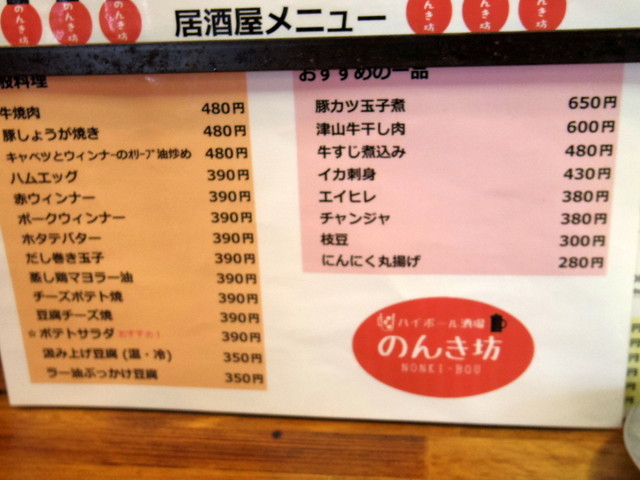 のんき坊 のんき坊 のんき坊
居酒屋メニュー
のんき坊
料理
牛焼肉 480円
豚しょうが焼き 480円
キャベツとウィンナーのオリーブ油炒め 480円
ハムエッグ 390円
赤ウィンナー 390円
ポークウィンナー 390円
ホタテバター 390円
だし巻き玉子 390円
蒸し鶏マヨラー油 390円
チーズポテト焼 390円
豆腐チーズ焼 390円
☆ポテトサラダ おすすめ! 390円
汲み上げ豆腐(温・冷) 350円
ラー油ぶっかけ豆腐 350円
おすすめの一品
豚カツ玉子煮 650円
津山牛干し肉 600円
牛すじ煮込み 480円
イカ刺身 430円
エイヒレ 380円
チャンジャ 380円
枝豆 300円
にんにく丸揚げ 280円
ハイボール酒場
のんき坊
NONKI-BOU